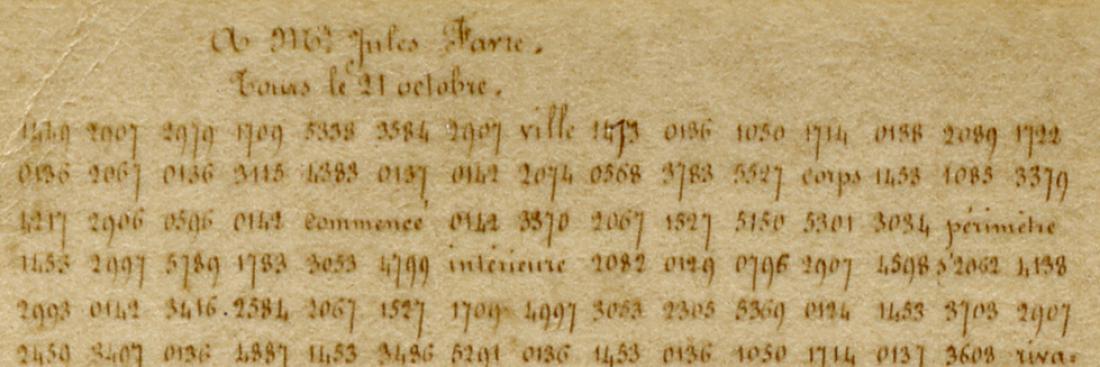 A Mr Jules Favre.
Tours le 21 octobre.
1449 2907 2979 1709 5338 3584 2907 ville 1473 0136 1050 1714 0138 2089 1722
0136 2067 0136 3115 4383 0137 0142 2074 0568 3783 5527 corps 1453 1083 3379
4217 2906 0596 0142 commence 0142 3370 2067 1527 5150 5301 3034 périmètre
1453 2997 5789 1783 3053 4799 intérieure 2082 0129 0796 2907 4598 s'2062 4138
2993 0142 3416.2584 2067 1527 1709 4997 3053 2305 5369 0124 1453 3703 2907
2459 3407 0136 4887 1453 3486 5291 0136 1453 0136 1050 1714 0137 3608 riva=